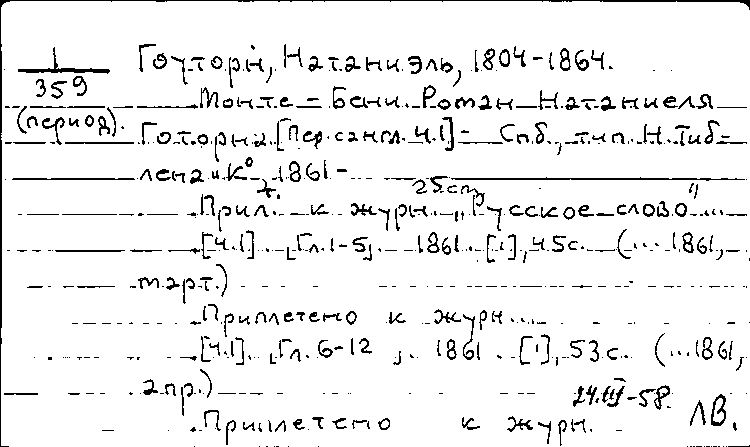 1
359
(период).
Гоуторн, Натаниэль, 1804-1864.
Монте-Бени. Роман Натаниеля
Готорна [Пер. с англ. Ч.1]- Спб., тип. Н. Тиб-
лена и К°, 1861-
25 cm
Прил. к журн. „Русское слово"...
[Ч.1]. [Гл. 1-5]. 1861. [1], 45 с. (...1861,
март.)
Приплетено к журн...
[Ч.1]. [Гл. 6-12]. 1861. [1], 53 с. (...1861,
апр.)
24.III-58.
Приплетено к журн.
ЛВ.